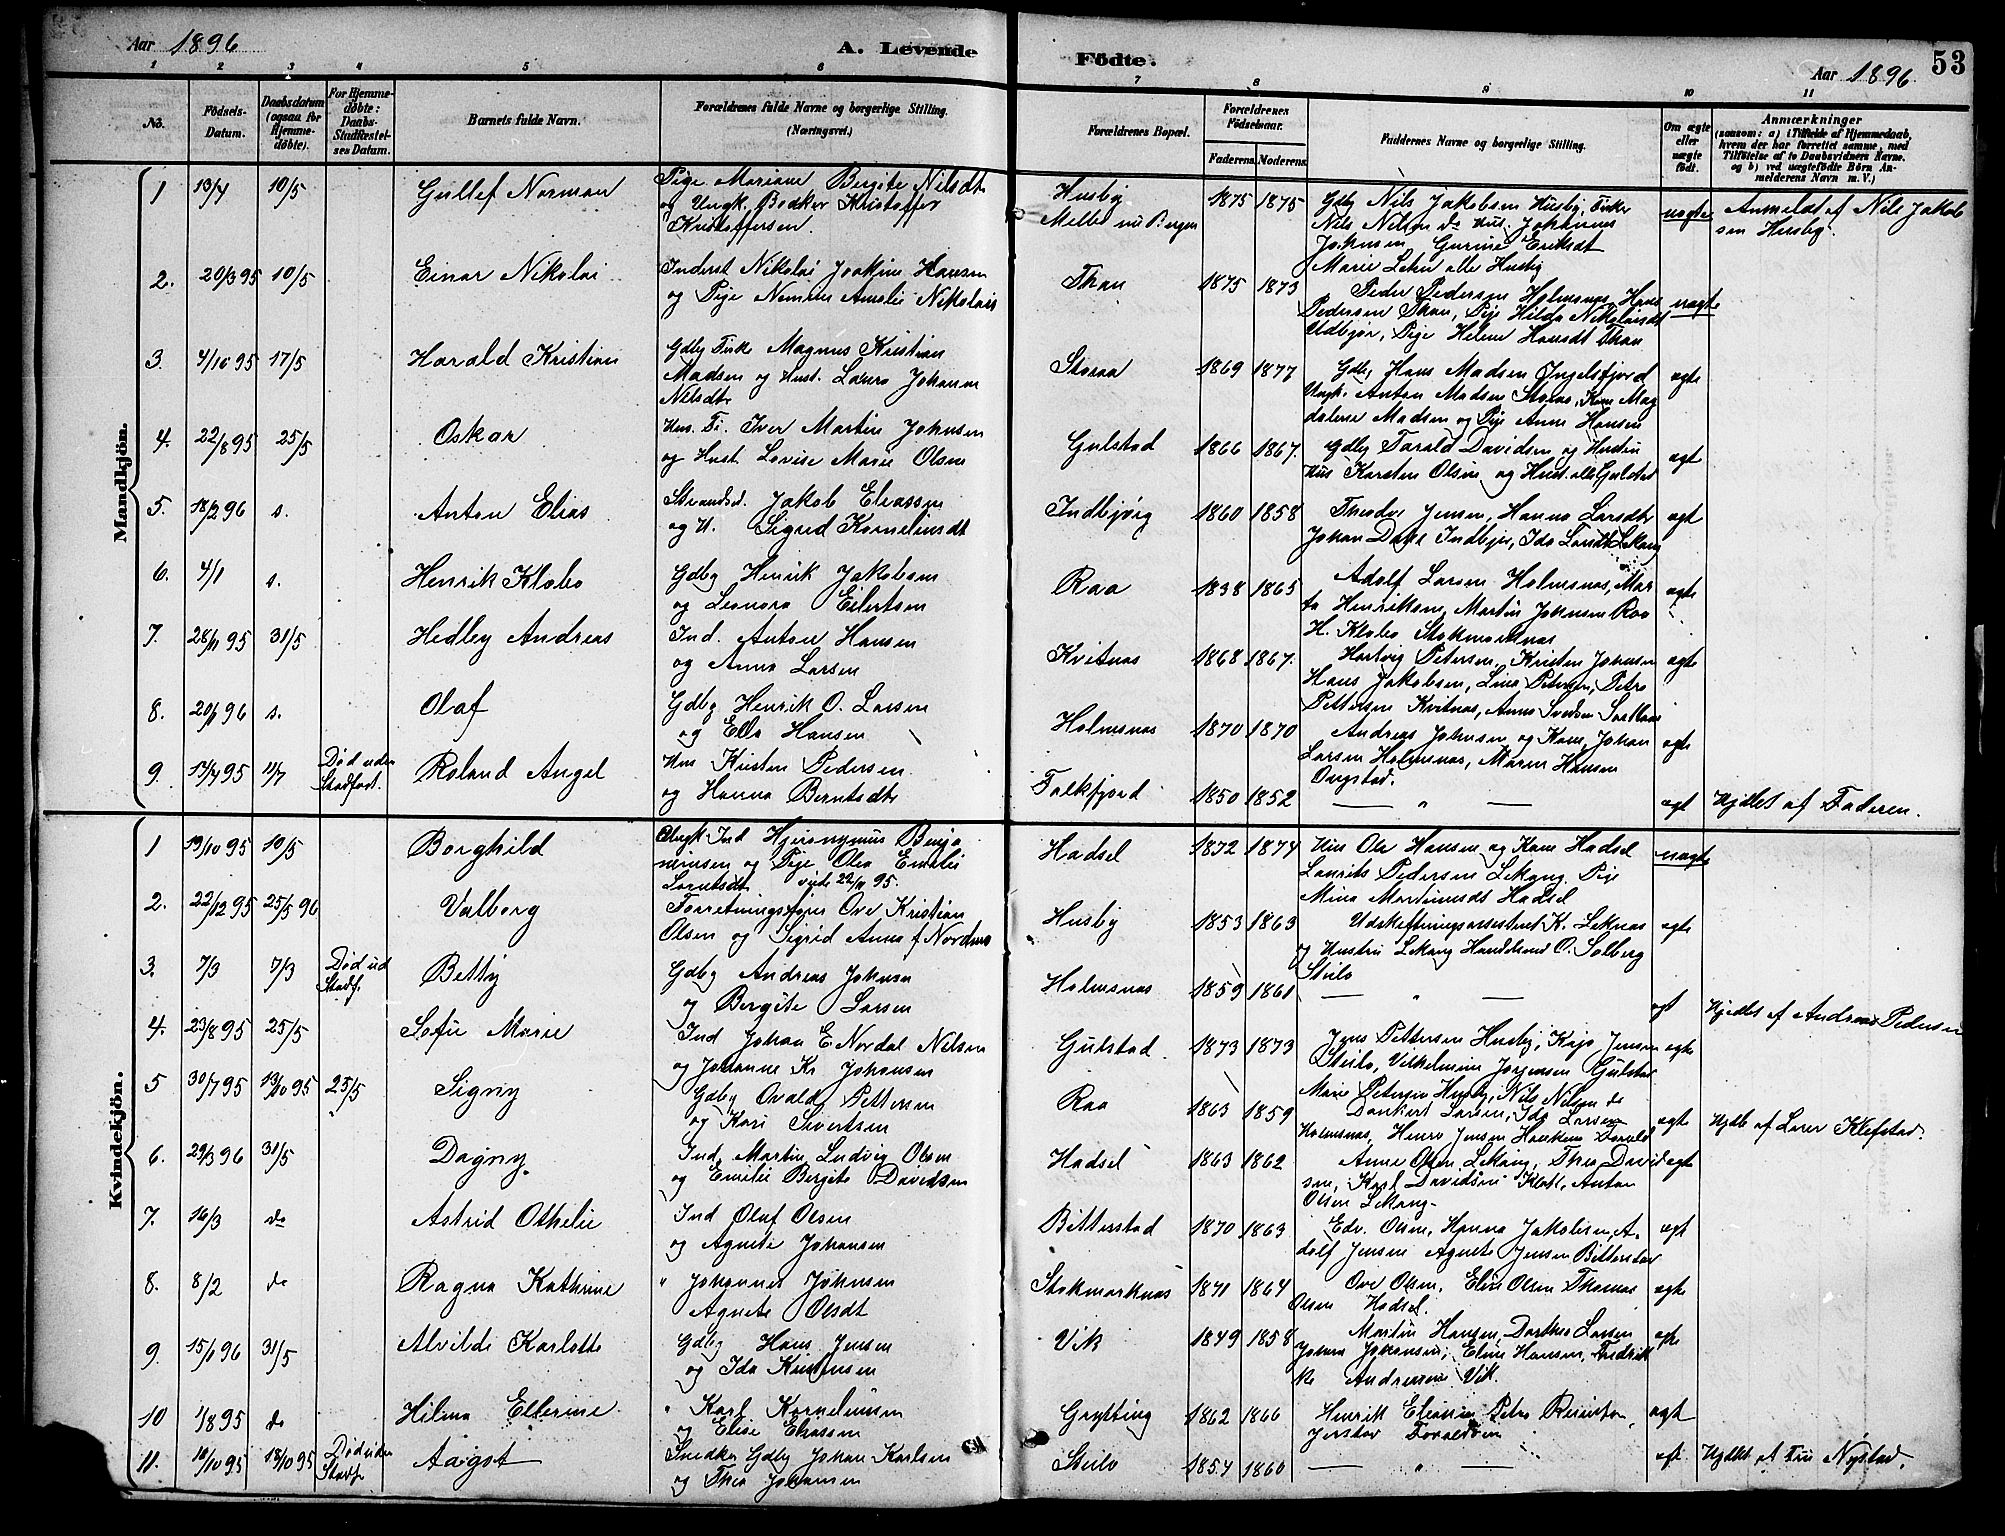 Aar 1896
A. Levende
Födte.
Aar 1896
53
1 2 3 4 5 6 7 8 9 10 11
No.
Födsels-
Datum.
Daabsdatum
(ogsaa for
Hjemme-
döbte).
For Hjemme-
döbte:
Daabs-
Stadfæstel-
ses Datum.
Barnets fulde Navn.
Forældrenes fulde Navne og borgerlige Stilling.
(Næringsvei.)
Forældrenes Bopæl.
Forældrenes
Födselsaar.
Faderens. Moderens.
Faddernes Navne og borgerlige Stilling.
Om ægte
eller
uægte
födt.
Anmærkninger
(saasom: a) i Tilfælde af Hjemmedaab,
hvem der har forrettet samme, med
Tilföielse af to Daabsvidners Navne.
og b) ved uægtefödte Börn An-
melderens Navn m. V.)
Mandkjön.
1 13/4 10/5 Gullef Norman
Pige Mariane Bergite Nilsdt
og Ungk. Bødker Kristoffer
Kristoffersen.
Husby
Melbo nu Bergen
1875 1875
Gdbg Nils Jakobsen Husby, Fisker
Nils Nilsen do Hus. Johannes
Johnsen Gurine Eriksdt
Marie Lehn alle Husby
uægte
Anmeldt af Nils Jakob
sen Husby.
2. 20/3 95 10/5 Einar Nikolai
Inderst Nikolai Joakim Hansen
og Pige Amalie Nikolais
Than
1875 1873
Peder Pedersen Holmsnes, Hans
Pedersen Than, Pige Hilda Nikolaisdt
Udbjør, Pige Helene Hansdt Than
uægte
3. 4/10 95 17/5 Harald Kristian
Gdbg Fisk. Magnus Kristian
Madsen og Hust. Laura Johanna
Nilsdtr
Storaa
1869 1877
Gdb, Hans Madsen Ingelsfjord
Ungk. Anton Madsen Storaa, Kone Mag
dalene Madsen og Pige Anne Hansen
ægte
4. 22/8 95 25/5 Oskar
Hus. Fi. Iver Martin Johnsen
og Hust Lovise Marie Olsen
Gulstad
1866 1867.
Gdbg Tarald Davidsen og Hustru
Hus Karsten Olsen og Hust. alle Gulstad
ægt
5. 18/2 96 s. Anton Elias
Strandsd. Jakob Eliassen
og H. Sigrid Korneliusdt
Indbjørg
1860 1858
Theodor Jensen, Hanna Larsdtr
Johan Dahl Indbjør, Ida Larsdt Lekang
ægt
6. 4/1 s. Henrik Klæbo
Gdbg Henrik Jakobsen
og Leonora Eilertsen
Raa
1838 1865
Adolf Larsen Holmsnæs, Mar
ta Henriksen, Martin Johnsen Raa
H. Klæbo Stokmarknæs
ægte
7. 28/11 95 31/5 Hedley Andreas
Ind. Anton Hansen
og Anna Larsen
Kvitnæs
1868 1867.
Hartvig Petersen, Kristen Johnsen
Hans Jakobsen, Lina Petersen, Petra
Pettersen Kvitnæs, Anna
ægte
8. 20/1 96 s. Olaf
Gdbg Henrik O. Larsen
og Ella Hansen
Holmsnæs
1870 1870
Andreas Johnsen og Kone, Johan
Larsen Holmsnæs, Maren Hansen
Ongstad.
ægte
9. 14/4 95 4/7 Død uden
Stadfæst. Roland Angel
Hus Kristen Pedersen
og Hanna Berntsdtr
Falkfjord
1850 1852
— " —
ægt
Hjdbt af Faderen.
Kvindekjön.
1 19/10 95 10/5 Borghild
Ungk. Ind Hjeronymus Benja
minsen og Pige Olea Emelie
Larntsdt viede 22/11 95.
Hadsel
1872 1874
Hus Ole Hansen og Kone Hadsel
Laurits Pedersen Lekang. Pige
Mina Martinusdt Hadsel
uægte
2. 22/12 95 25/5 96 Valborg
Forretningsfører Ove Kristian
Olsen og Sigrid Anna f Nordnes
Husby
1853 1863
Udskiftningsassistent K. Leknæs
og Hustru Lekang Handlsmd O. Solberg
Steilo
ægte
3. 7/3 7/3 Død ud
Stadf. Betty
Gdbg Andreas Johnsen
og Bergite Larsen
Holmsnæs
1859 1861
— " —
ægt
Hjdbt af Andreas Pedersen
4. 23/8 95 25/5 Sofie Marie
Ind Johan E. Nordal Nilsen
og Johanne Kr Johansen
Gulstad
1873 1873
Jens Pettersen Husby, Kaja Jensen
Steilo, Vilhelmine Jørgensen Gulstad
Marie Petersen Husby, Nils Nilsen do
ægte
5 30/7 95 13/10 95 25/5 Signy
Gdbg Ovald Pettersen
og Kari Sivertsen
Raa
1863 1859
Dankert Larsen, Ida Larsen
Holmsnæs, Jensen
ægte
Hjdb af Lærer Klefstad.
6. 29/3 96 31/5 Dagny.
Ind. Martin Ludvig Olsen
og Emilie Bergite Davidsen
Hadsel
1863 1862
Anne Olsen Lekang, Thea David
sen, Karl Davidsen, Anton
Olsen Lekang.
ægt
7. 16/3 do Astrid Othelie
Ind Oluf Olsen
og Agnete Johansen
Bitterstad
1870 1863
Edv. Olsen, Hanna Jakobsen, A-
dolf Jensen Agnete Jensen Bitterstad
ægt
8. 8/2 do Ragna Kathrine
" Johannes Johnsen
Agnete Olsdt
Stokmarknæs
1871 1864
Ove Olsen, Eline Olsen Thomas
Olsen Hadsel.
ægte
9 15/1 96 31/5 Alvilde Karlotte
Gdbg Hans Jensen
og Ida Kristensen
Vik
1849 1858
Martin Hansen, Dorthea Larsen
Johan Johansen, Eline Hansen, Fredrik
ke Andreasen Vik.
ægte
10 1/8 95 do Hilma Ellerine
" Karl Korneliusen
og Elise Eliassen
Grytting
1862 1866
Henrik Eliassen Petra Reinertsen,
ægt
11. 10/10 95 18/10 95 Død uden
Stadf. Aagot
Snedker Gdbg Johan Karlsen
og Thea Johansen
Steilo
1854 1860
— " —
ægt.
Hjdbt af Fru Nystad.